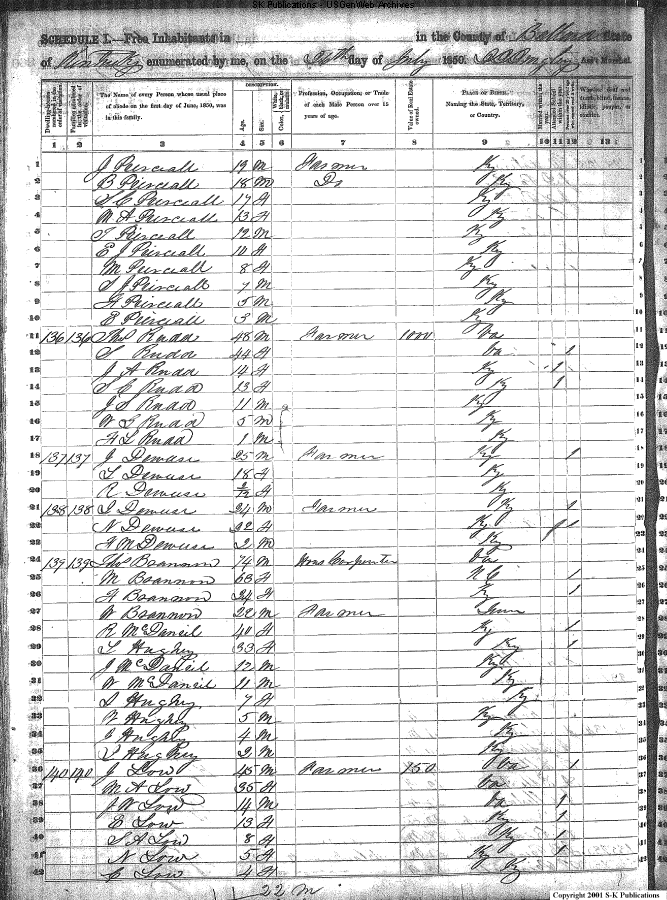 SK Publications - USGenWeb Archives
SCHEDULE I.—Free Inhabitants in in the County of State
of Kentucky enumerated by me, on the day of July 1850. Ass't Marshal
Dwelling-houses numbered in the order of visitation.
Families numbered in the order of visitation.
The Name of every Person whose usual place of abode on the first day of June, 1850, was in this family.
DESCRIPTION.
Age.
Sex.
Color, White, black, or mulatto.
Profession, Occupation, or Trade of each Male Person over 15 years of age.
Value of Real Estate owned.
PLACE OF BIRTH. Naming the State, Territory, or Country.
Married within the year.
1 2 3 4 5 6 7 8 9 10 11 12 13
1 J Pierciall 19 M Farmer Ky
2 B Pierciall 18 M Do Ky
3 S C Pierciall 17 F Ky
4 M A Pierciall 13 F Ky
5 T Pierciall 12 M Ky
6 E J Pierciall 10 F Ky
7 M Pierciall 8 F Ky
8 S J Pierciall 7 M Ky
9 H Pierciall 5 M Ky
10 E Pierciall 3 M Ky
11 136 136 Thos Rudd 48 M Farmer 1000 Va
12 S Rudd 44 F Va 1
13 J A Rudd 14 F Ky 1
14 S C Rudd 13 F Ky 1
15 J S Rudd 11 M Ky
16 W S Rudd 5 M Ky
17 H L Rudd 1 M Ky
18 137 137 J Dewese 25 M Farmer Ky 1
19 L Dewese 18 F Ky
20 R Dewese 2/12 F Ky
21 138 138 I Dewese 24 M Farmer Ky 1
22 N Dewese 22 F Ky 1
23 H M Dewese 2 M Ky
24 139 139 Thos Brannon 74 M Hous Carpenter Va
25 M Brannon 63 F N C 1
26 F Brannon 24 F Ky 1
27 W Brannon 22 M Farmer Tenn
28 R McDaniel 40 F Ky 1
29 L Hughey 33 F Ky 1
30 J McDaniel 12 M Ky
31 W McDaniel 11 M Ky
32 S Hughey 7 F Ky
33 F Hughey 5 M Ky
34 Hughey 4 M Ky
35 Hughey 2 M Ky
36 140 140 J Low 45 M Farmer 150 Va 1
37 M A Low 35 F Va
38 J W Low 14 M Va 1
39 E Low 13 F Ky 1
40 S A Low 8 F Ky 1
41 N Low 5 F Ky 1
42 C Low 4 F Ky
22 M
Copyright 2001 S-K Publications